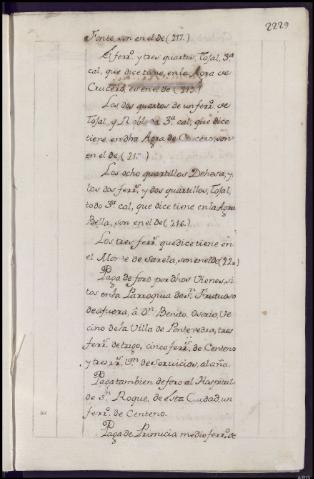 2229
Fonte, son en el de (217.)
A ferr.º y tres quartos, Tojal, 3ª
cal, que dice tiene, en la Agra de
Crucero, es en el de (213.)
Los dos quartos de un ferr.º de
Tojal, y 3ª cal, que dice
tiene en dha Agra de Crucero, son
en el de
Los ocho quartillos Dehesa, y
los dos ferr.s y dos quartillos, Tojal,
todo 3ª cal, que dice tiene en la Agra
Bella, son en el de (216.)
Los tres ferr.s que dice tiene en
el Monte de Sarela, son en el de (220)
Paga de foro por dhos Vienes, si
tos en la Parroquia de S.n Fructuoso
de afuera, â D.n Benito Osorio, Ve
cino de la Villa de Pontevedra, tres
ferr.s de trigo, cinco ferr.s de Centeno
y tres rr.s v.on de Servicios, al año.
Paga tambien de foro al Hospital
de S.n Roque, de esta Ciudad, un
ferr.º de Centeno.
Paga de Primicia medio ferr.º de